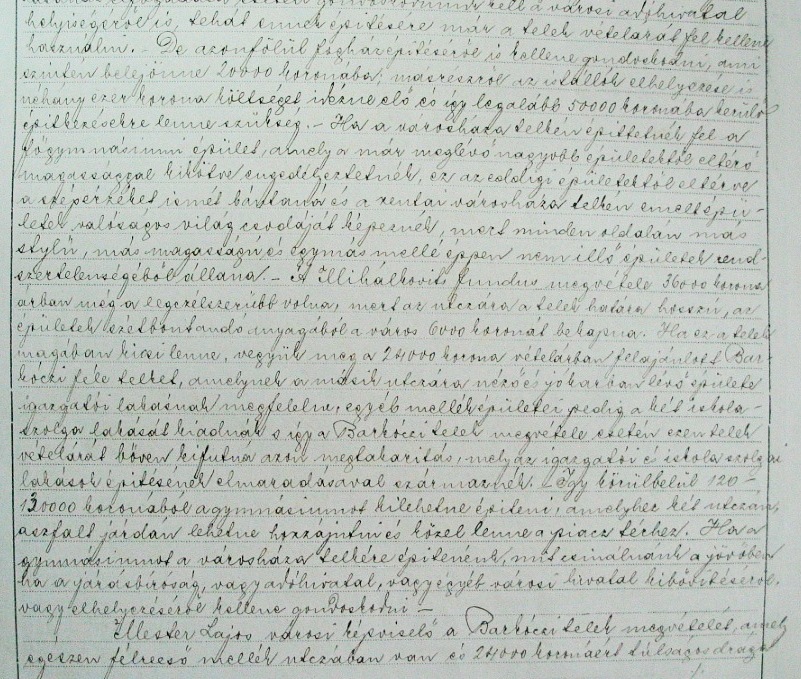 kell a városi adóhivatal
helyiségéről is, tehát ennek építésére már a telek vételárát fel kellene
használni. - De azonfölül fogház építéséről is kellene gondoskodni, ami
szintén belejönne 20000 koronába; másrészről az istállók elhelyezése is
néhány ezer korona költséget idézne elő és így legalább 50000 koronába kerülő
építkezésekre lenne szükség. - Ha a városháza telkén építtetnék fel a
főgymnásium épület, amely a már meglévő nagyobb épületektől eltérő
magassággal kikötve engedélyeztetnék, ez az eddigi épületektől eltérve
a szépérzéket ismét bántaná és a zentai városháza telken emelt épü-
letek valóságos világ csodáját képeznék, mert minden oldalán más
stylü, más magasságú és egymás mellé éppen nem illő épületek rend-
szertelenségéből állana. - A Mihálkovits fundus megvétele 36000 korona
árban még a legczélszerűbb volna, mert az utczára a telek határa hosszu, az
épületek szétbontandó anyagából a város 6000 koronát bekapna. Ha ez a telek
magában kicsi lenne, vegyük meg a 24000 korona vételárban felajánlott Bar-
kóczi féle telket, amelynek a másik utczára néző és jó karban lévő épülete
igazgatói lakásnak megfelelne, egyéb mellék épületei pedig a két iskola-
szolga lakását kiadnák s így a Barkóczi telek megvétele esetén ezen telek
vételárát bőven kifutna azon megtakarítás, mely az igazgatói és iskola szolgai
lakások építésének elmaradásával származnék. Így körülbelül 120-
130000 koronából a gymnásiumot ki lehetne építeni, amelyhez két utczán,
aszfalt járdán lehetne hozzájutni és közel lenne a piacz térhez. Ha a
gymnásiumot a városháza telkére építenénk, mit csinálnánk a jövőben
ha a járásbíróság, vagy adóhivatal, vagy egyéb városi hivatal kibővítéséről,
vagy elhelyezéséről kellene gondoskodni -
Mester Lajos városi képviselő a Barkóczi telek megvételét, amely
egészen félreeső mellék utczában van és 24000 koronáért túlságos drága